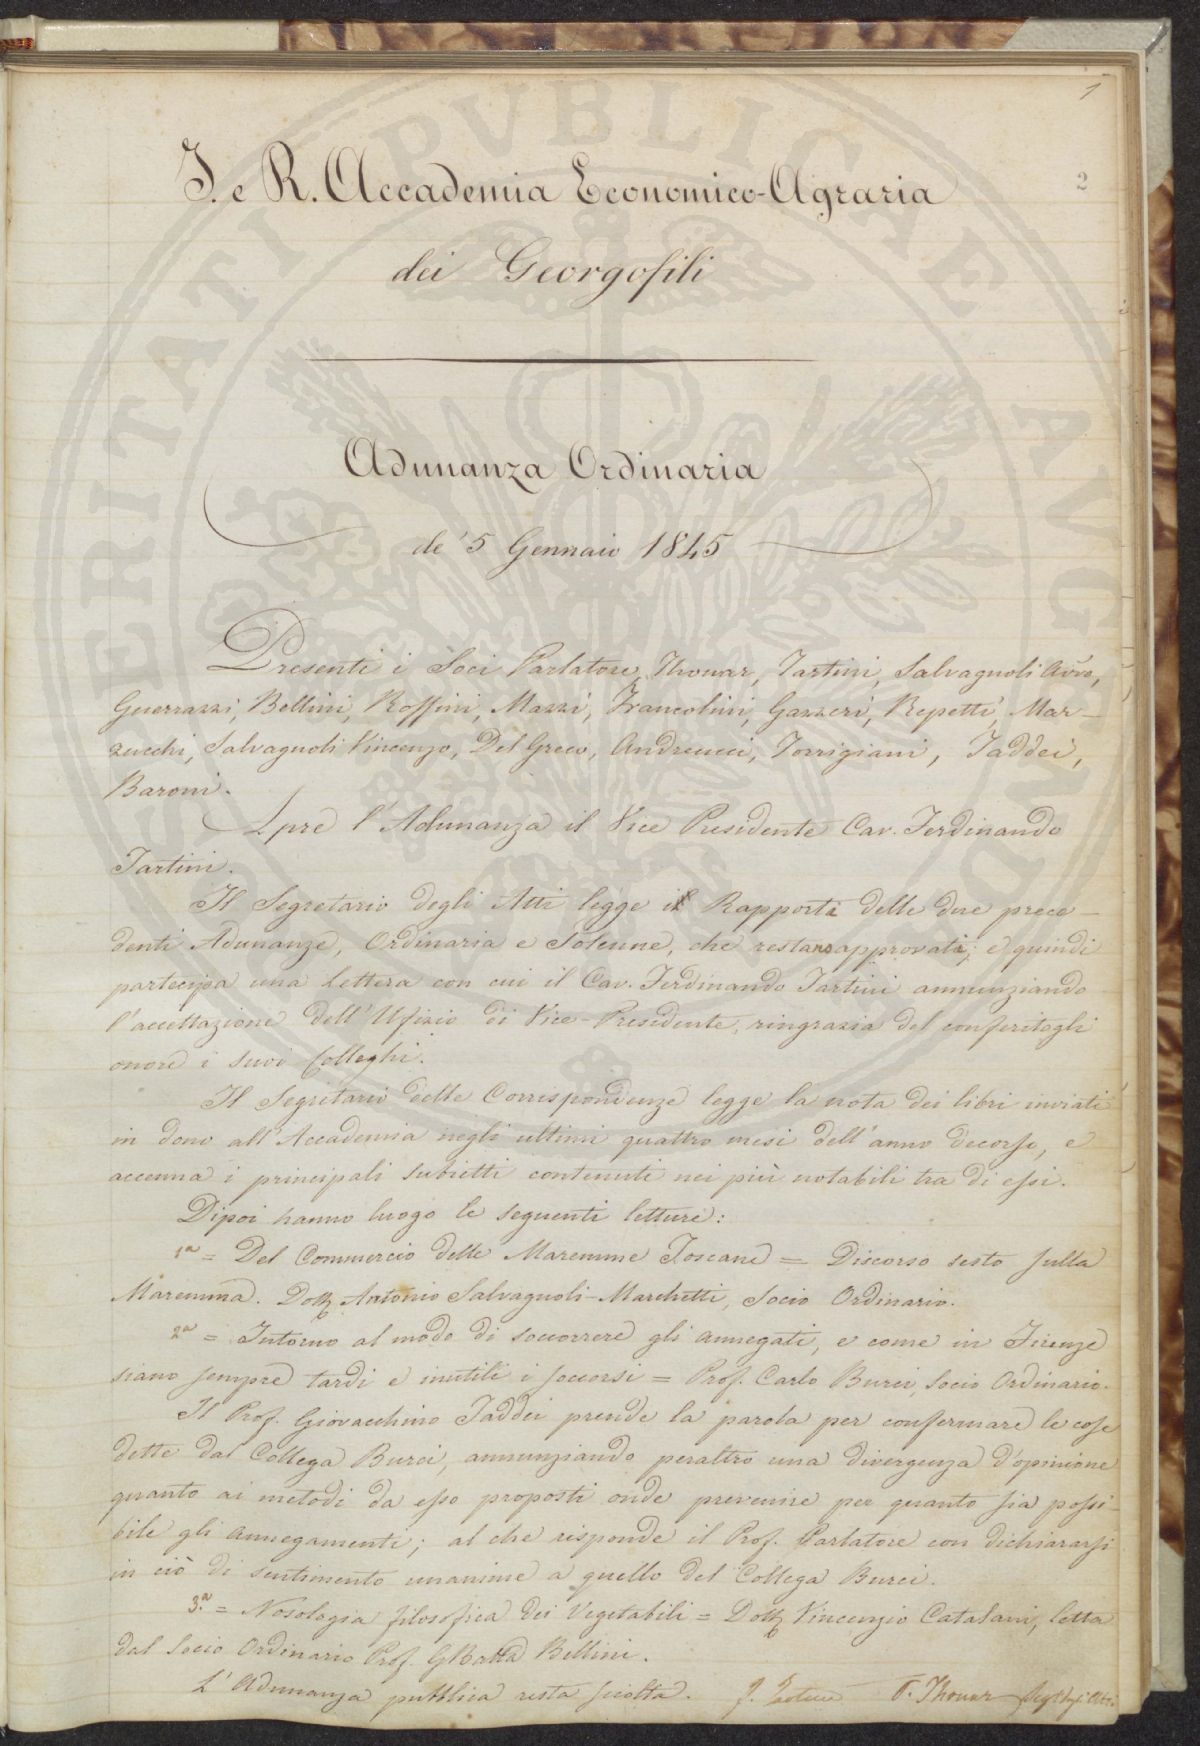 1
2
I. e R. Accademia Economico-Agraria
dei Georgofili
Adunanza Ordinaria
de' 5 Gennaio 1845
Presenti i Soci Parlatore, Thouar, Tartini, Salvagnoli Avv.o,
Guerrazzi, Bellini, Roffini, Mazzi, Francolini, Gazzeri, Repetti, Mar-
zucchi, Salvagnoli Vincenzo, Del Greco, Andreucci, Torrigiani, Taddei,
Baroni.
Apre l'Adunanza il Vice Presidente Cav. Ferdinando
Tartini.
Il Segretario degli Atti legge i Rapporti delle due prece-
denti Adunanze, Ordinaria e Solenne, che restano approvati; e quindi
partecipa una lettera con cui il Cav. Ferdinando Tartini annunziando
l'accettazione dell'Ufizio di Vice-Presidente, ringrazia del conferitogli
onore i suoi Colleghi.
Il Segretario delle Corrispondenze legge la nota dei libri inviati
in dono all'Accademia negli ultimi quattro mesi dell'anno decorso, e
accenna i principali subietti contenuti nei più notabili tra di essi.
Dipoi hanno luogo le seguenti letture:
1ª = Del Commercio delle Maremme Toscane = Discorso sesto sulla
Maremma. Dott. Antonio Salvagnoli-Marchetti, Socio Ordinario.
2ª = Intorno al modo di soccorrere gli annegati, e come in Firenze
siano sempre tardi e inutili i soccorsi = Prof. Carlo Burci, Socio Ordinario.
Il Prof. Giovacchino Taddei prende la parola per confermare le cose
dette dal Collega Burci, annunziando peraltro una divergenza d'opinione
quanto ai metodi da esso proposti onde prevenire per quanto sia possi-
bile gli annegamenti; al che risponde il Prof. Parlatore con dichiararsi
in ciò di sentimento unanime a quello del Collega Burci.
3.ª = Nosologia filosofica dei Vegetabili = Dott. Vincenzio Catalani, letta
dal Socio Ordinario Prof. GBatta Bellini.
L'Adunanza pubblica resta sciolta. P. Thouar Seg. degli Atti.